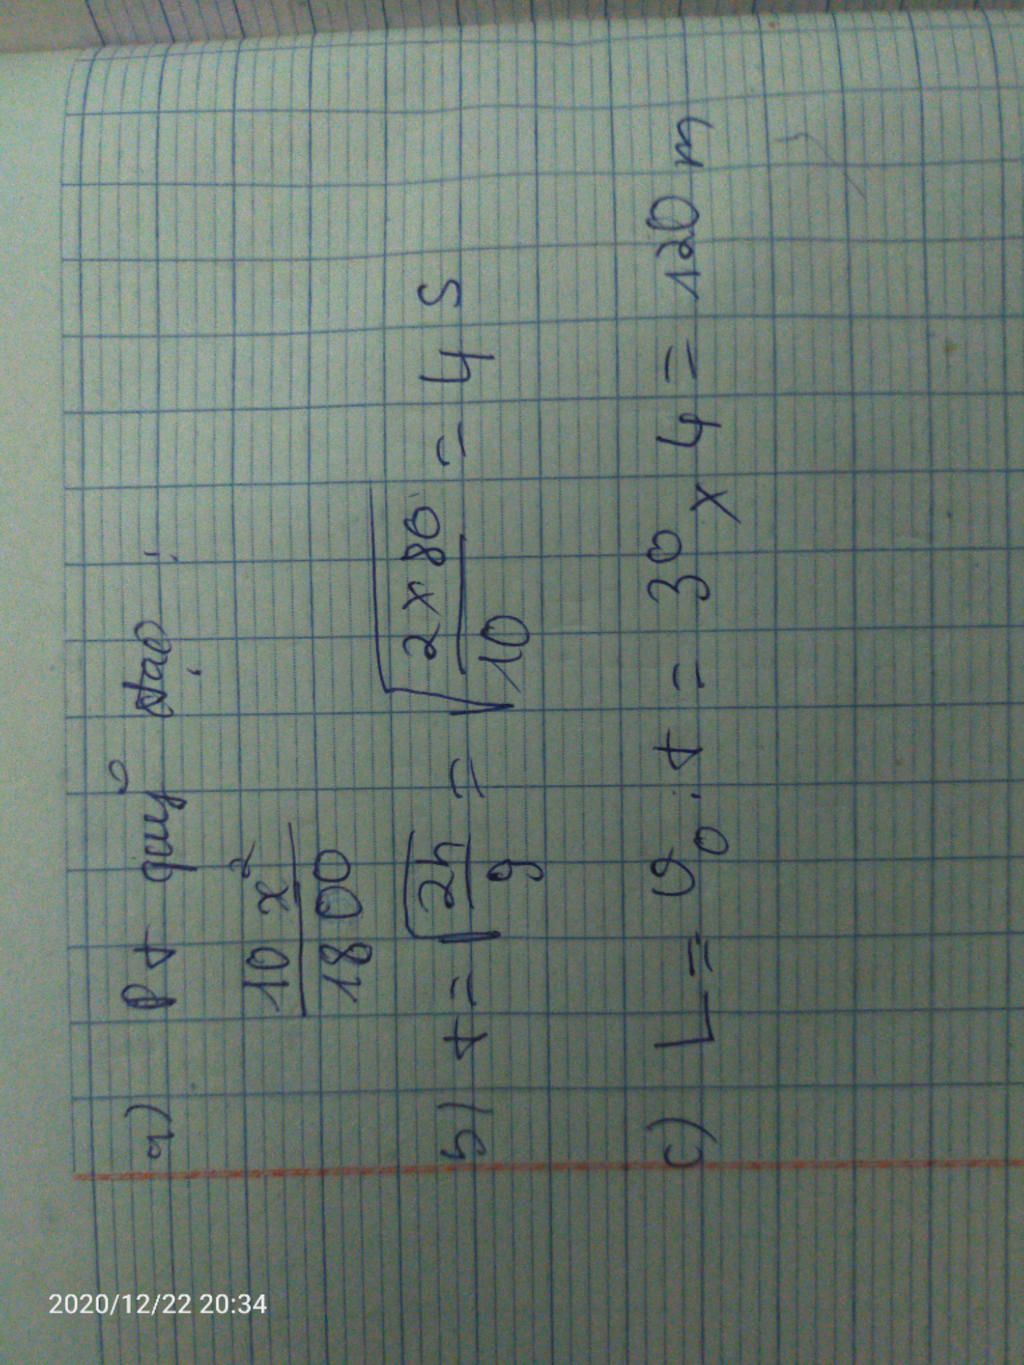 a) Pt quỹ đạo :
10 x²
1800
b) t = √2h/g = √2 x 80/10 = 4 s
c) L = v₀ . t = 30 x 4 = 120 m
2020/12/22 20:34